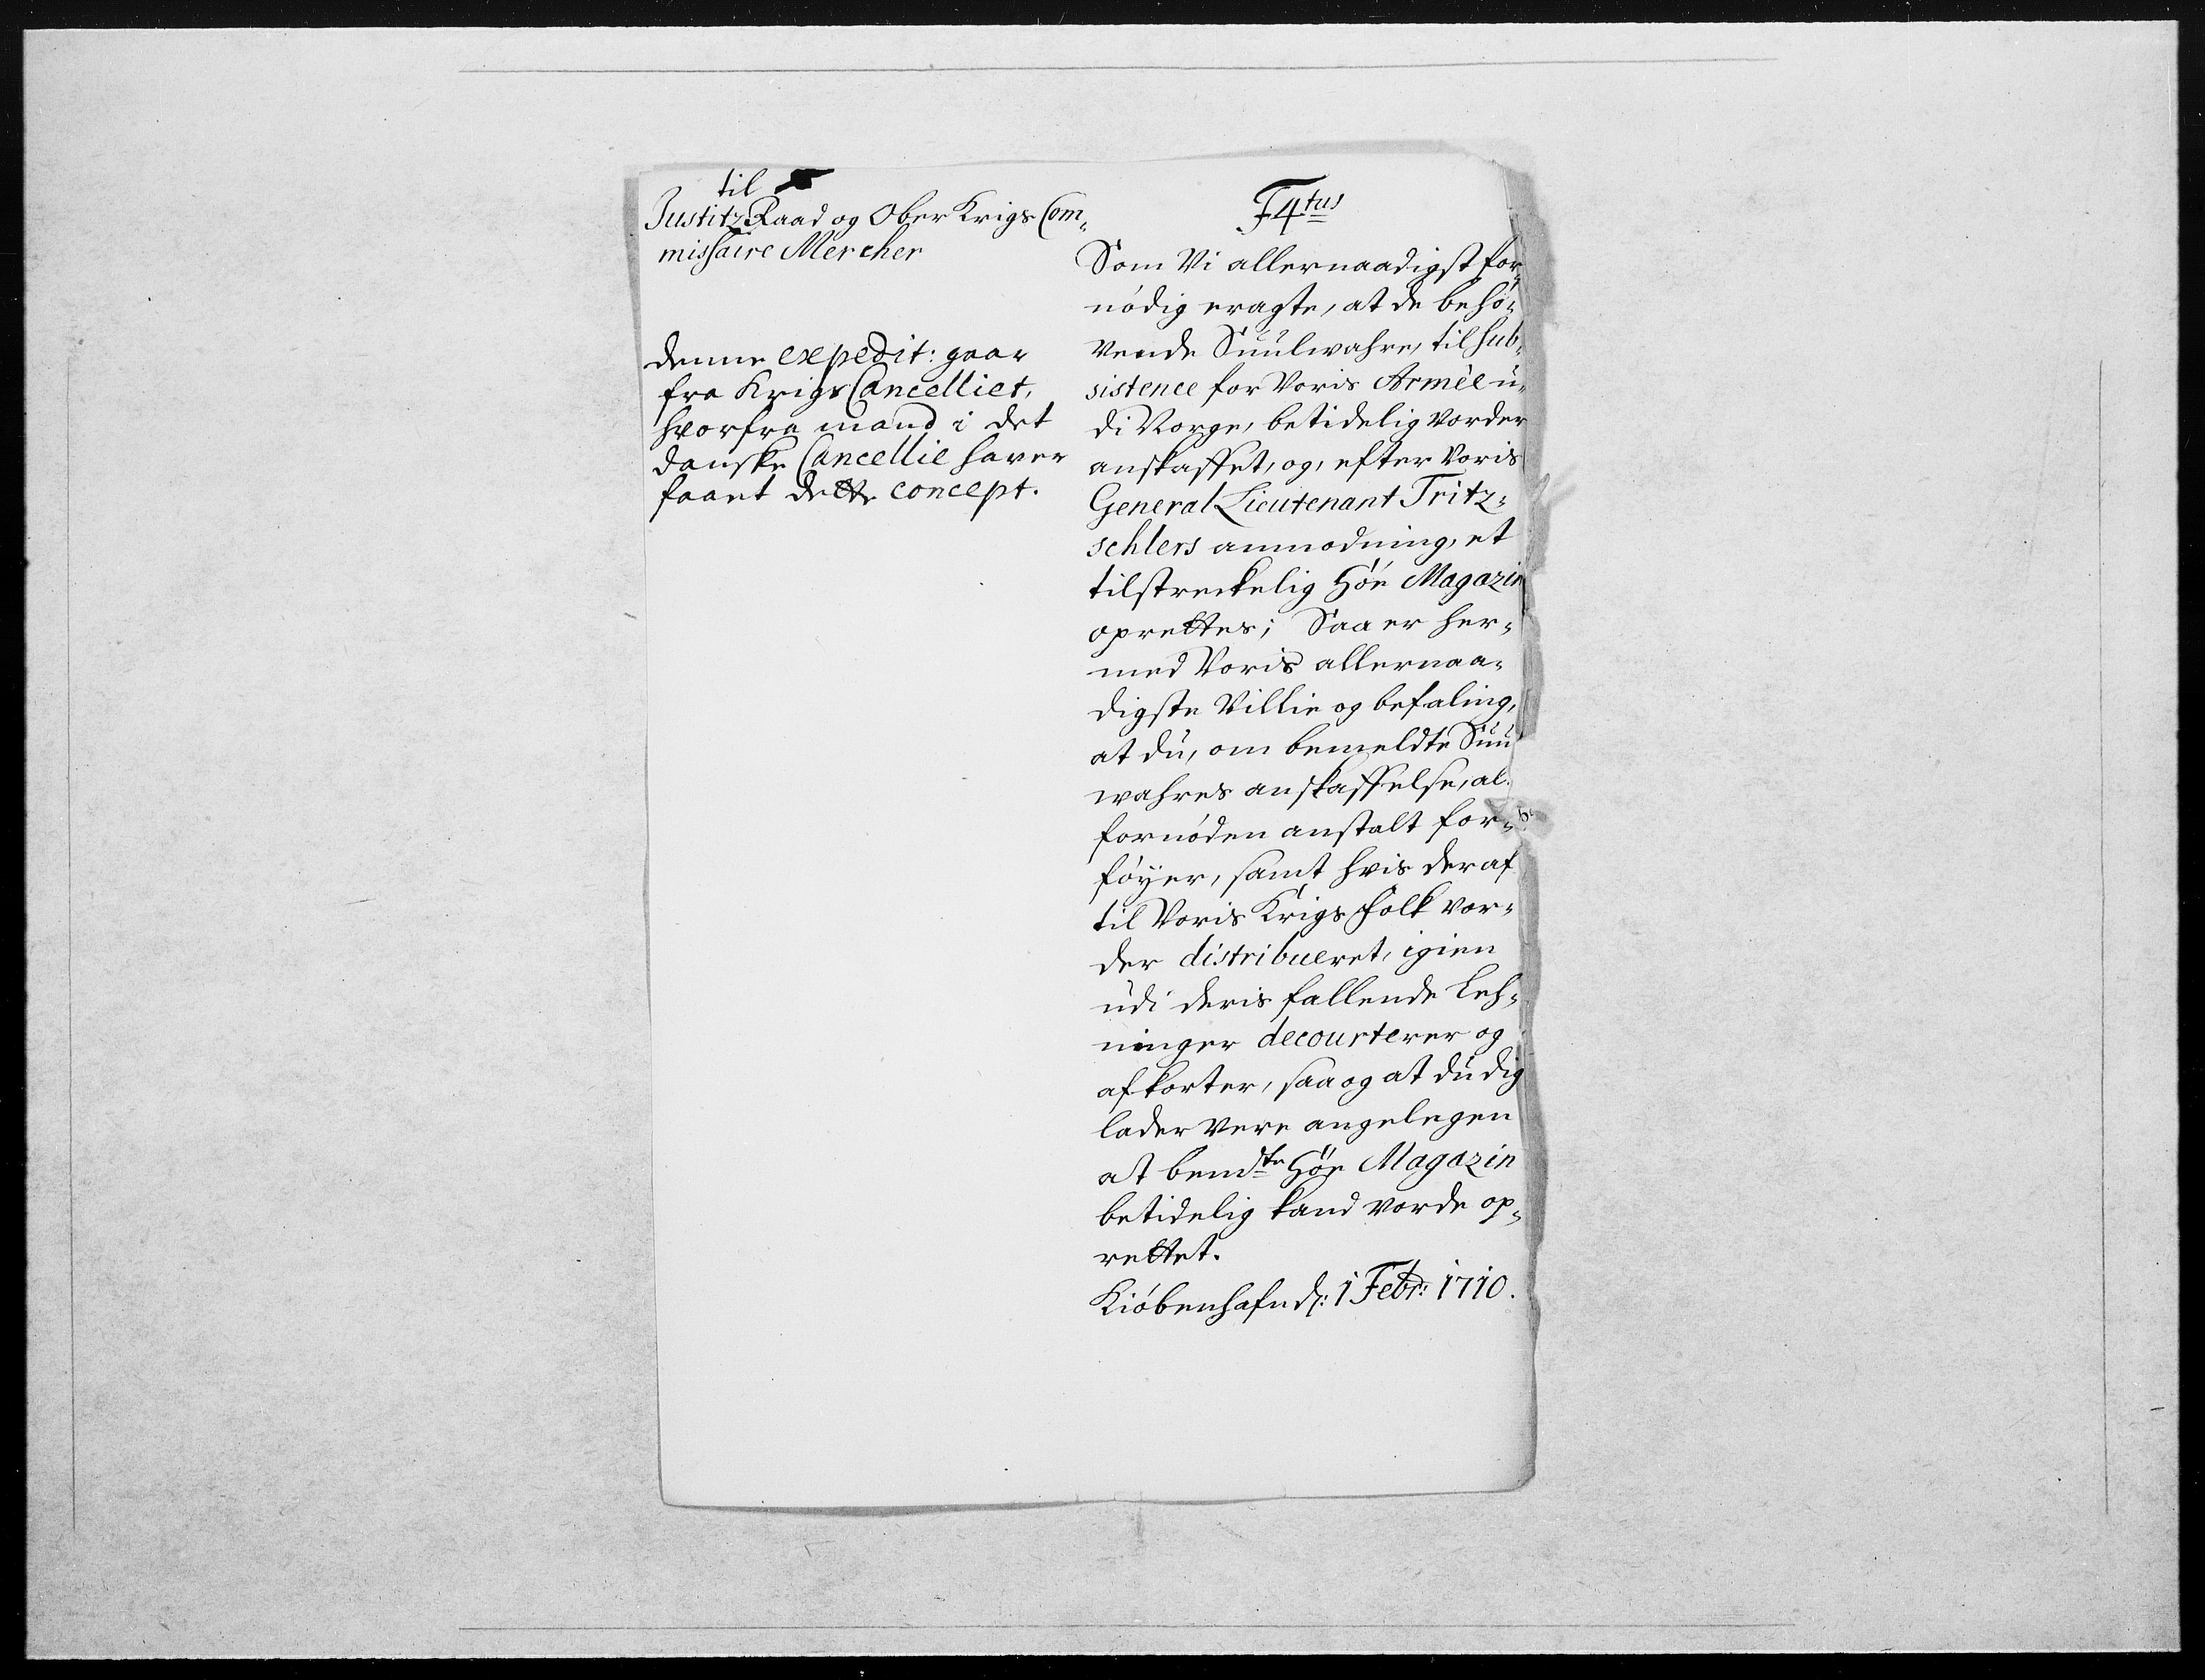 til
Justitz Raad og Ober Krigs Com„
missaire Mercher
denne expedit: gaar
fra Krigs Cancelliet,
hvorfra mand i det
danske Cancellie haver
faaet dette concept.
F4tus
Som Vi allernaadigst for„
nödig eragte, at de behö„
vende Suulwahre, til sub„
sistence for Voris Armèe u„
di Norge, betidelig vorder
anskaffet, og, efter Voris
General Lieutenant Tritz„
schlers anmodning, et
tilstreckelig Höe Magazin
oprettes; Saa er her„
med Voris allernaa„
digste Villie og befaling,
at du, om bemeldte Suu
wahres anskaffelse, al
fornöden anstalt for„
föyer, samt hvis deraf
til Voris Krigs folk vor„
der distribueret, igien
udi deris fallende Leh„
ninger decourterer og
afkorter, saa og at du dig
lader vere angelegen
at bemdte Höe Magazin
betidelig kand vorde op„
rettet.
Kiöbenhafn d: 1 Febr: 1710.